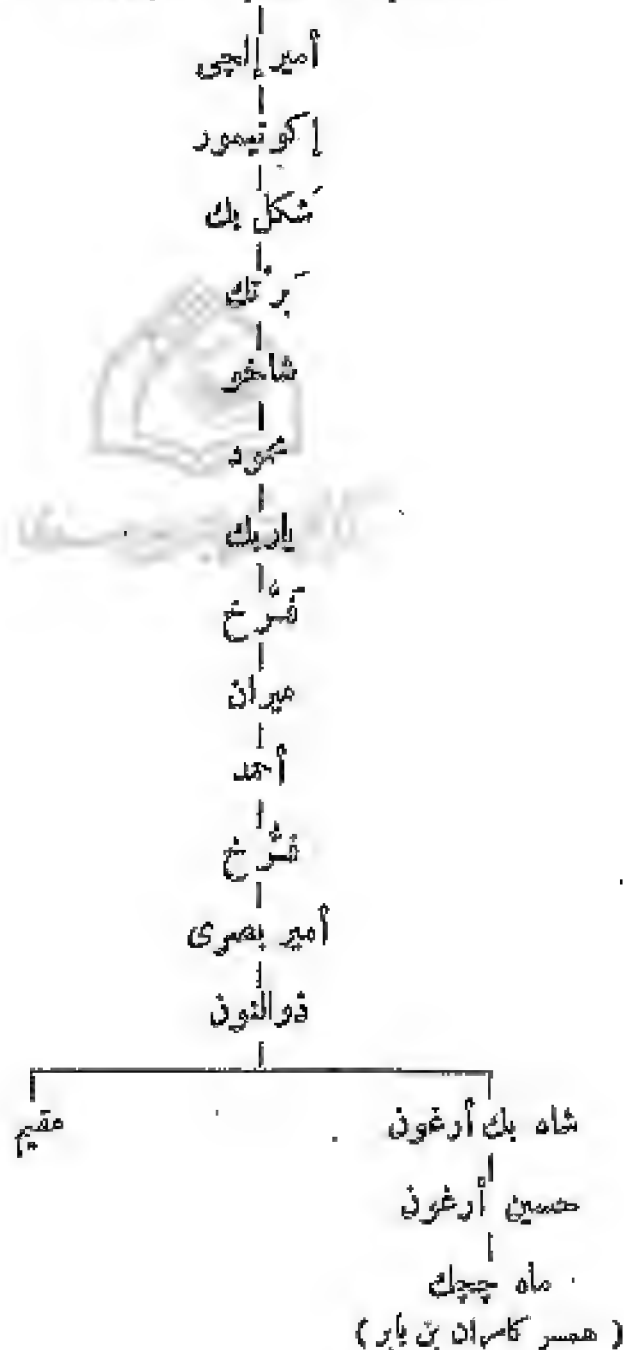 أمير إلچى
إكو تيمور
شَكَل بك
بَرْتك
شاخو
محمود
يار بك
فَرُّخ
ميران
أحمد
فرُّخ
أمير بصرى
ذو النون
شاه بك أرغون
مقيم
حسين أرغون
ماه چچك
( همسر كامران بن بابر )